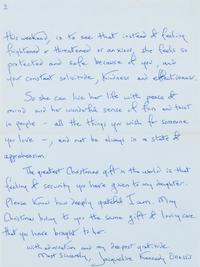 2
this weekend, is to see that instead of feeling
frightened or threatened or anxious, she feels so
protected and safe because of you, and
your constant solicitude, kindness and effectiveness.
So she can live her life with peace of
mind and her wonderful sense of fun and trust
in people - all the things you wish for someone
you love -, and not be always in a state of
apprehension.
The greatest Christmas gift in the world is that
feeling of security you have given to my daughter.
Please know how deeply grateful I am. May
Christmas bring to you the same gift of loving care
that you have brought to her.
with admiration and my deepest gratitude
Most sincerely, Jacqueline Kennedy Onassis